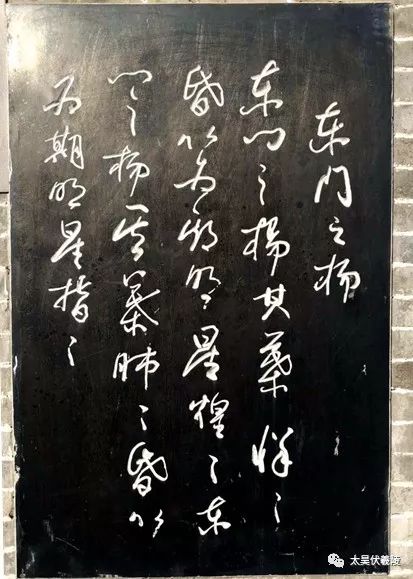 东门之杨
东门之楊其葉牂々
昏以为期明星煌々东
门之杨其葉肺々昏以
为期明星晢々
太昊伏羲陵